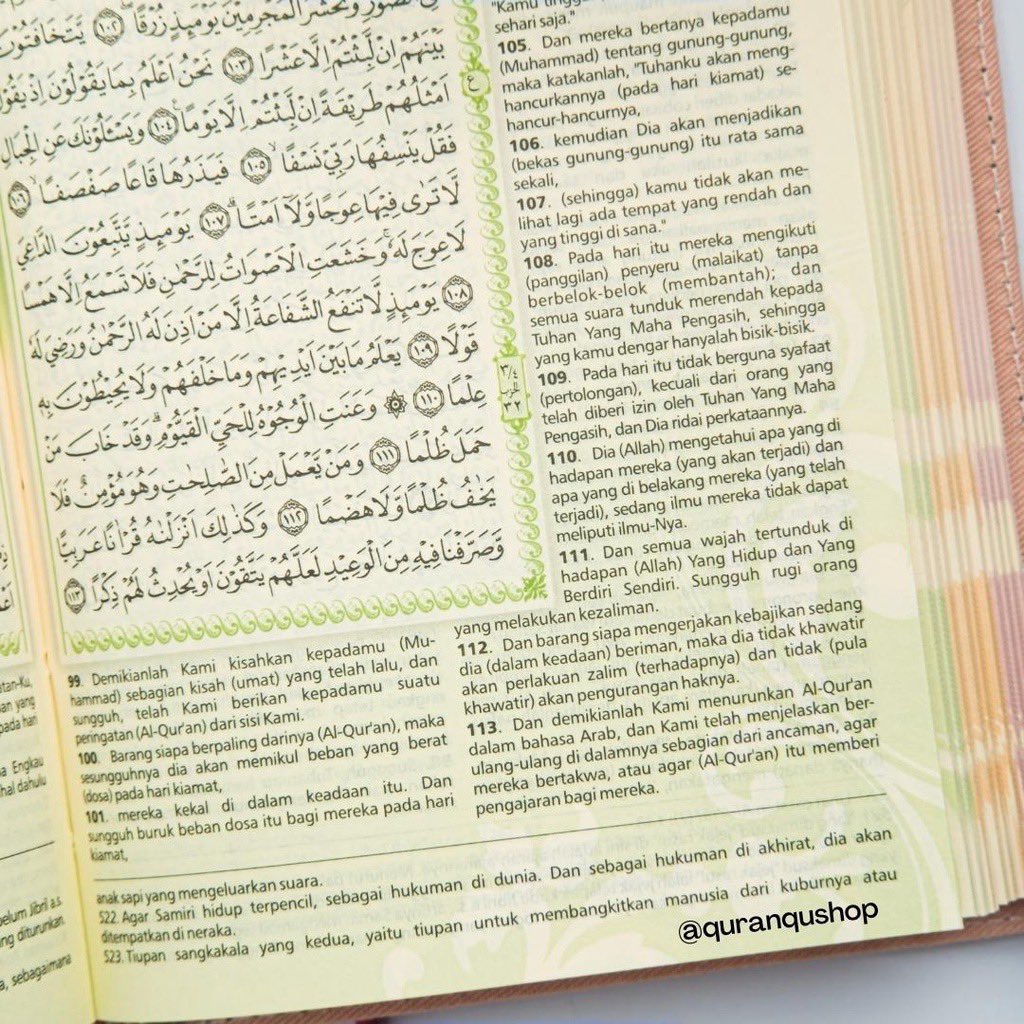 فِى الصُّوْرِ وَنَحْشُرُ الْمُجْرِمِيْنَ يَوْمَىِٕذٍ زُرْقًا ۝١٠٢ يَتَخَافَتُوْنَ
بَيْنَهُمْ اِنْ لَّبِثْتُمْ اِلَّا عَشْرًا ۝١٠٣ نَحْنُ اَعْلَمُ بِمَا يَقُوْلُوْنَ اِذْ يَقُوْلُ
اَمْثَلُهُمْ طَرِيْقَةً اِنْ لَّبِثْتُمْ اِلَّا يَوْمًا ۝١٠٤ وَيَسْـَٔلُوْنَكَ عَنِ الْجِبَالِ
فَقُلْ يَنْسِفُهَا رَبِّيْ نَسْفًا ۝١٠٥ فَيَذَرُهَا قَاعًا صَفْصَفًا ۝١٠٦
لَّا تَرٰى فِيْهَا عِوَجًا وَّلَآ اَمْتًا ۝١٠٧ يَوْمَىِٕذٍ يَّتَّبِعُوْنَ الدَّاعِيَ
لَا عِوَجَ لَهٗ وَخَشَعَتِ الْاَصْوَاتُ لِلرَّحْمٰنِ فَلَا تَسْمَعُ اِلَّا هَمْسًا
۝١٠٨ يَوْمَىِٕذٍ لَّا تَنْفَعُ الشَّفَاعَةُ اِلَّا مَنْ اَذِنَ لَهُ الرَّحْمٰنُ وَرَضِيَ لَهٗ
قَوْلًا ۝١٠٩ يَعْلَمُ مَا بَيْنَ اَيْدِيْهِمْ وَمَا خَلْفَهُمْ وَلَا يُحِيْطُوْنَ بِهٖ
عِلْمًا ۝١١٠ ۞ وَعَنَتِ الْوُجُوْهُ لِلْحَيِّ الْقَيُّوْمِ وَقَدْ خَابَ مَنْ
حَمَلَ ظُلْمًا ۝١١١ وَمَنْ يَّعْمَلْ مِنَ الصّٰلِحٰتِ وَهُوَ مُؤْمِنٌ فَلَا
يَخٰفُ ظُلْمًا وَّلَا هَضْمًا ۝١١٢ وَكَذٰلِكَ اَنْزَلْنٰهُ قُرْاٰنًا عَرَبِيًّا
وَّصَرَّفْنَا فِيْهِ مِنَ الْوَعِيْدِ لَعَلَّهُمْ يَتَّقُوْنَ اَوْ يُحْدِثُ لَهُمْ ذِكْرًا ۝١١٣
ع
٣/٤
الحزب
٣٢
"Kamu
sehari saja."
105. Dan mereka bertanya kepadamu
(Muhammad) tentang gunung-gunung,
maka katakanlah, "Tuhanku akan meng-
hancurkannya (pada hari kiamat) se-
hancur-hancurnya,
106. kemudian Dia akan menjadikan
(bekas gunung-gunung) itu rata sama
sekali,
107. (sehingga) kamu tidak akan me-
lihat lagi ada tempat yang rendah dan
yang tinggi di sana."
108. Pada hari itu mereka mengikuti
(panggilan) penyeru (malaikat) tanpa
berbelok-belok (membantah); dan
semua suara tunduk merendah kepada
Tuhan Yang Maha Pengasih, sehingga
yang kamu dengar hanyalah bisik-bisik.
109. Pada hari itu tidak berguna syafaat
(pertolongan), kecuali dari orang yang
telah diberi izin oleh Tuhan Yang Maha
Pengasih, dan Dia ridai perkataannya.
110. Dia (Allah) mengetahui apa yang di
hadapan mereka (yang akan terjadi) dan
apa yang di belakang mereka (yang telah
terjadi), sedang ilmu mereka tidak dapat
meliputi ilmu-Nya.
111. Dan semua wajah tertunduk di
hadapan (Allah) Yang Hidup dan Yang
Berdiri Sendiri. Sungguh rugi orang
yang melakukan kezaliman.
112. Dan barang siapa mengerjakan kebajikan sedang
dia (dalam keadaan) beriman, maka dia tidak khawatir
akan perlakuan zalim (terhadapnya) dan tidak (pula
khawatir) akan pengurangan haknya.
113. Dan demikianlah Kami menurunkan Al-Qur'an
dalam bahasa Arab, dan Kami telah menjelaskan ber-
ulang-ulang di dalamnya sebagian dari ancaman, agar
mereka bertakwa, atau agar (Al-Qur'an) itu memberi
pengajaran bagi mereka.
99. Demikianlah Kami kisahkan kepadamu (Mu-
hammad) sebagian kisah (umat) yang telah lalu, dan
sungguh, telah Kami berikan kepadamu suatu
peringatan (Al-Qur'an) dari sisi Kami.
100. Barang siapa berpaling darinya (Al-Qur'an), maka
sesungguhnya dia akan memikul beban yang berat
(dosa) pada hari kiamat,
101. mereka kekal di dalam keadaan itu. Dan
sungguh buruk beban dosa itu bagi mereka pada hari
kiamat,
anak sapi yang mengeluarkan suara.
522. Agar Samiri hidup terpencil, sebagai hukuman di dunia. Dan sebagai hukuman di akhirat, dia akan
ditempatkan di neraka.
523. Tiupan sangkakala yang kedua, yaitu tiupan untuk membangkitkan manusia dari kuburnya atau
@quranqushop
an yang
pada hari
Engkau
hal dahulu
Jibril a.s.
diturunkan.
sebagaimana